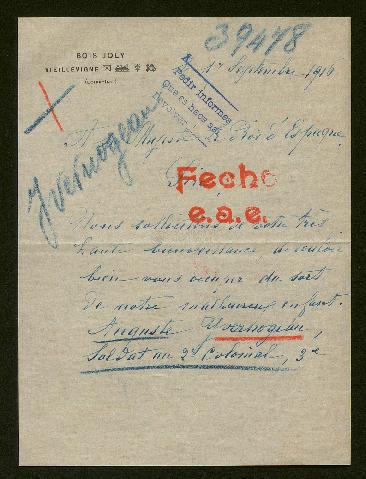 39478
BOIS JOLY
VIEILLEVIGNE
1er Septembre 1916
Pedir informes
Yvernogeau
A Sa Majesté le Roi d'Espagne
Fecho
e.a.e.
Sire,
Nous sollicitons de votre très
haute bienveillance de vouloir
bien vous occuper du sort
de notre malheureux enfant.
Auguste Yvernogeau,
Soldat au 2e Colonial, 3e